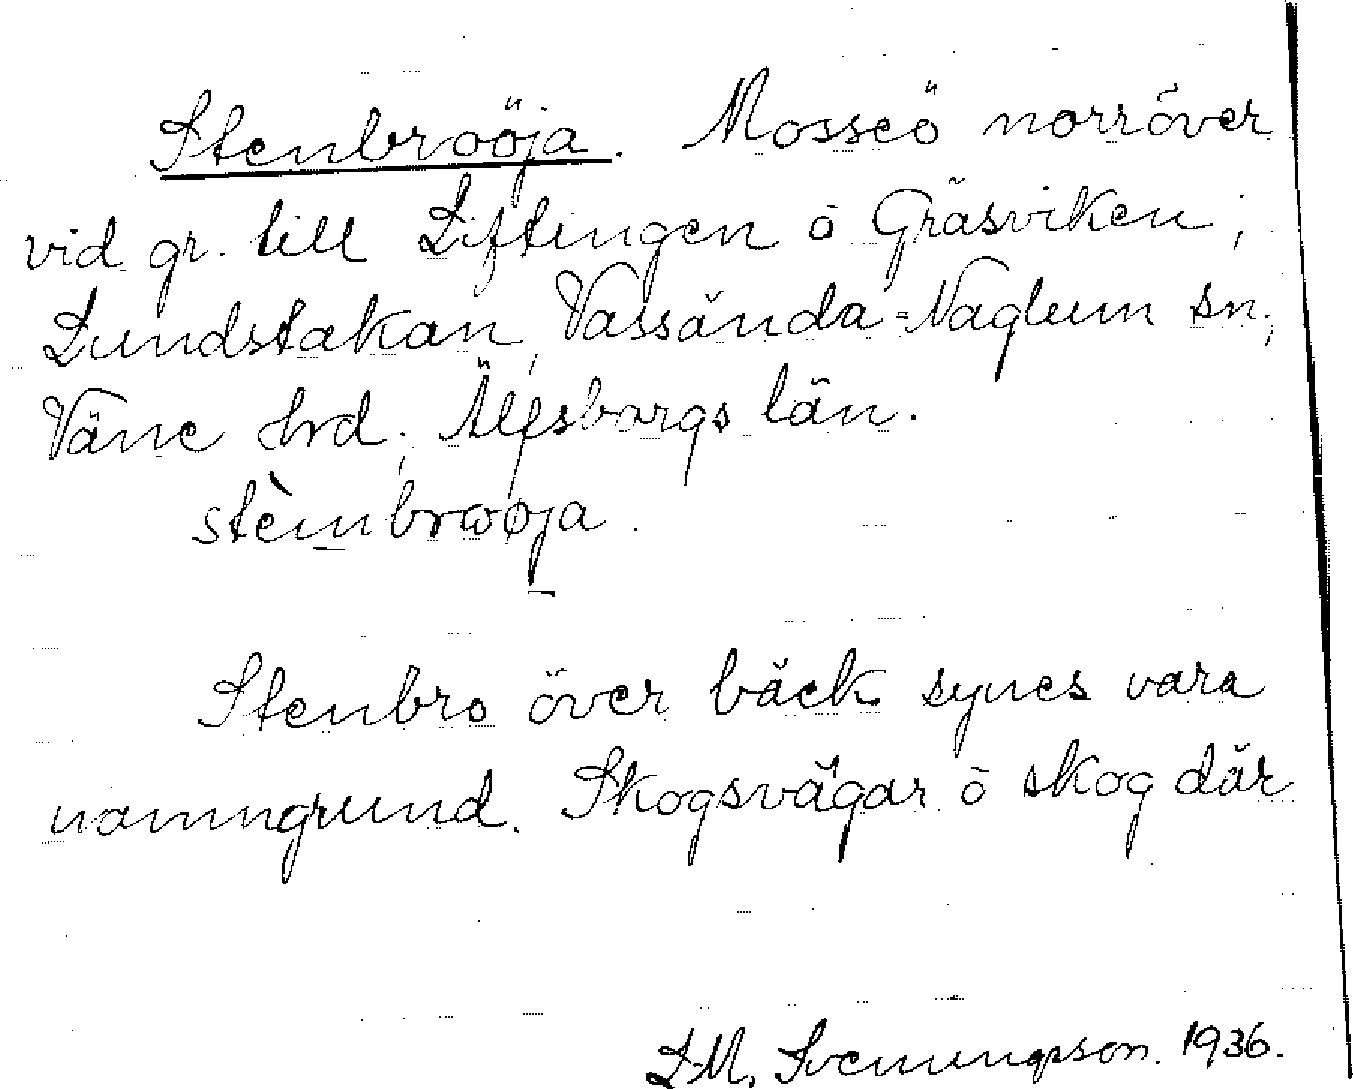 Stenbroöja. Mosseö norröver
vid gr. till Liftingen o Gräsviken;
Lundstakan, Vassända-Naglum sn;
Väne hrd; Älfsborgs län.
stèmbrωøja.
Stenbro över bäck synes vara
namngrund. Skogsvägar o skog där
L.M. Svenungsson. 1936.